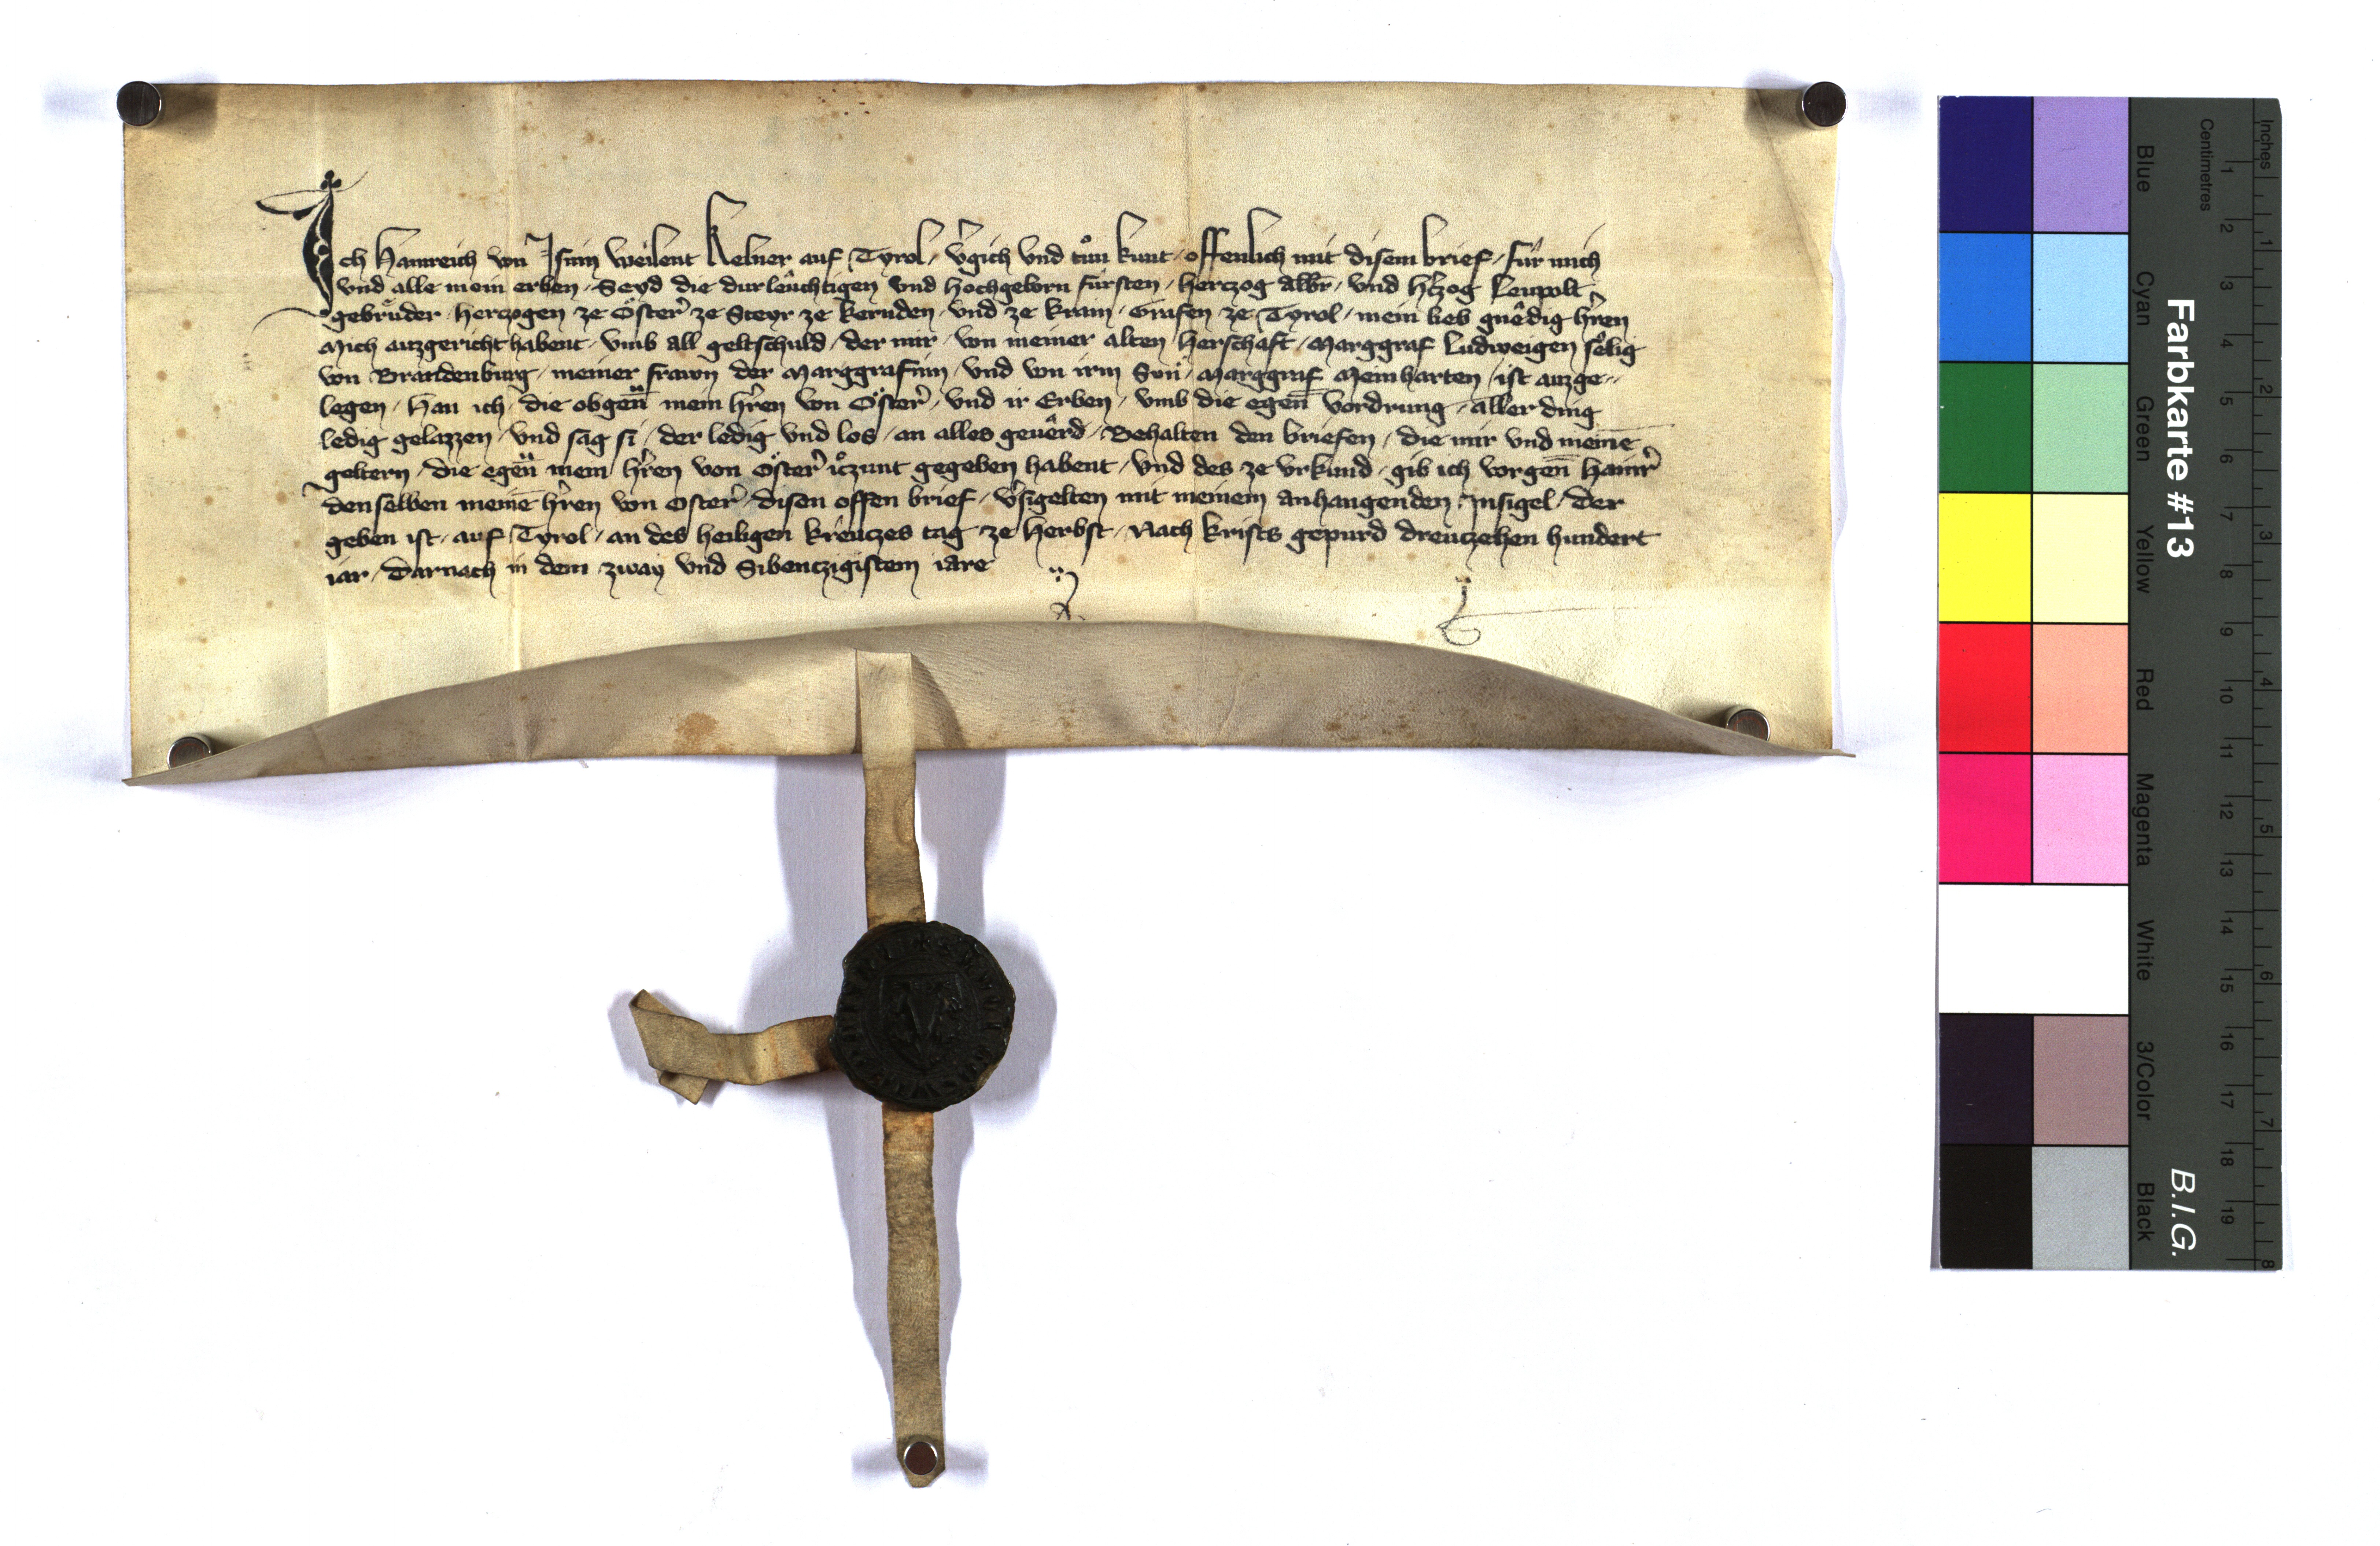 Ich Hainreich von Isnin weilent kelner auf Tyrol / v̓gich vnd tůn kunt / offenlich mit disem brief / für mich
vnd alle mein erben / Seyd die durleuchtigen vnd hochgeborn fürsten / herczog Albr̄ / vnd h̓czog Leupolt
gebrüder / herczogen ze Öster̓ ze Steyr ze kernden / vnd ze krain / Grafen ze Tyrol / mein lieb gnêdig h̓ren
Mich auzgericht habent / vmb all geltschuld / der mir / von meiner alten herschaft / Marggraf Ludweigen sêlig
von Brandenburg / meiner frawn der Marggrafinn / vnd von irm Sun / Marggraf Meinharten / ist auzge-
legen / Han ich / die obgen̄ mein h̓ren von Öster̓ / vnd ir Erben / vmb die egen̄ vordrung / aller ding
ledig gelazzen / vnd sag si / der ledig vnd los / an alles geuêrd / Behalten den briefen / die mir vnd meinē
geltern / die egen̄ mein h̓ren von Öster̓ iczunt gegeben habent / vnd des ze vrkund / gib ich vorgen̄ Hainr̓
denselben meinē h̓ren von Oster̓ / disen offen brief / v̓sigelten mit meinem anhangenden Insigel / Der
geben ist / auf Tyrol / an des heiligen kreuczes tag / ze herbst / Nach krists gepurd dreuczehen hundert
iar / Darnach in dem zway vnd Sibenczigistem iare
Inches
Centimetres
1 2 3 4 5 6 7 8 9 10 11 12 13 14 15 16 17 18 19
1 2 3 4 5 6 7 8
Farbkarte #13
B.I.G.
Blue
Cyan
Green
Yellow
Red
Magenta
White
3/Color
Black